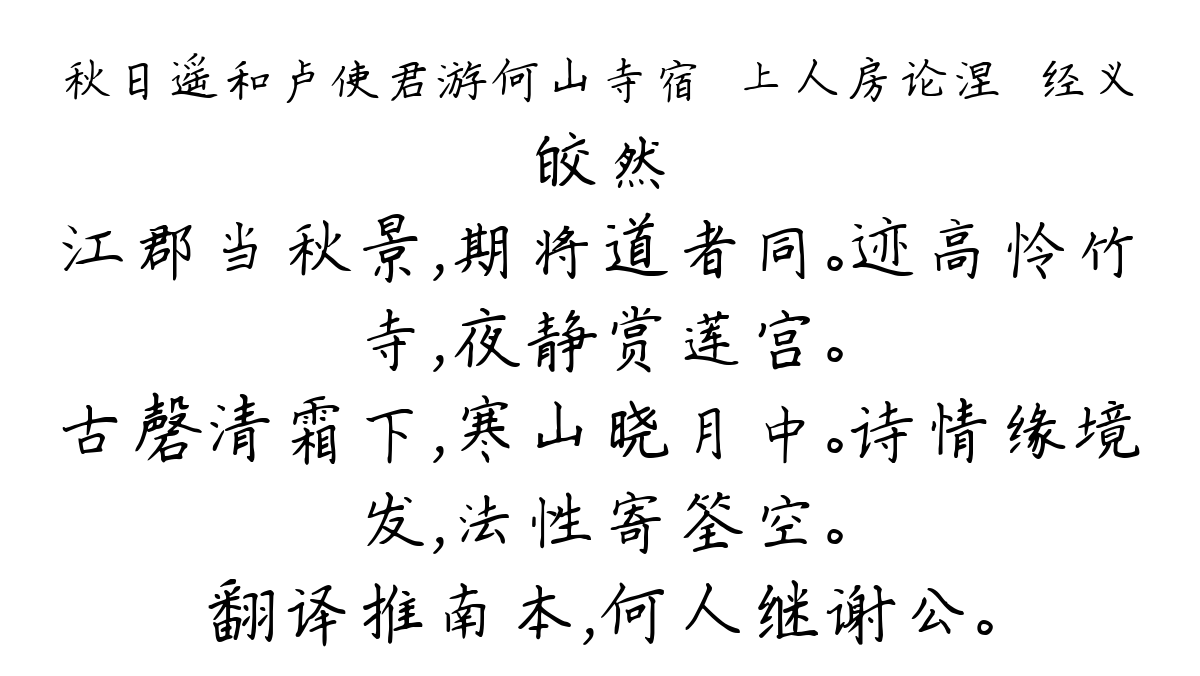 秋日遥和卢使君游何山寺宿 上人房论涅 经义
皎然
江郡当秋景,期将道者同。迹高怜竹
寺,夜静赏莲宫。
古磬清霜下,寒山晓月中。诗情缘境
发,法性寄筌空。
翻译推南本,何人继谢公。